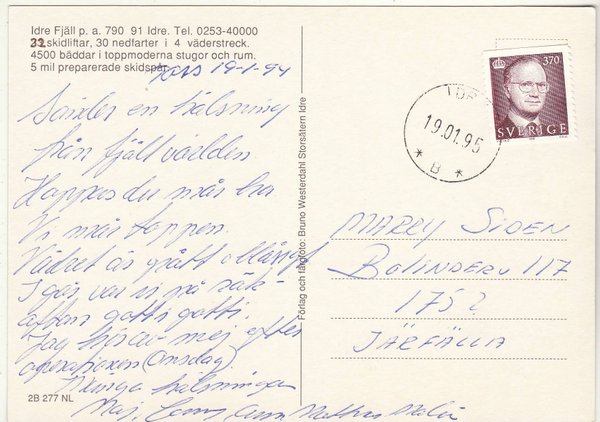 Idre Fjäll p. a. 790 91 Idre. Tel. 0253-40000
33 skidliftar, 30 nedfarter i 4 väderstreck.
4500 bäddar i toppmoderna stugor och rum.
5 mil preparerade skidspår.
19-1-94
Sänder en hälsning
från fjällvärlden
Hoppas du mår bra
Vi mår toppen.
Vädret är grått
I går var vi på
gott i gott.
Jag hör av mej efter
operationen (onsdag).
Många hälsningar
Maj,
2B 277 NL
Förlag och flygfoto: Bruno Westerdahl Storsätern Idre
370
SVERIGE
IDRE
19.01.95
* B *
MARRY SIDEN
BOLINDERV 117
1752
JÄRFÄLLA